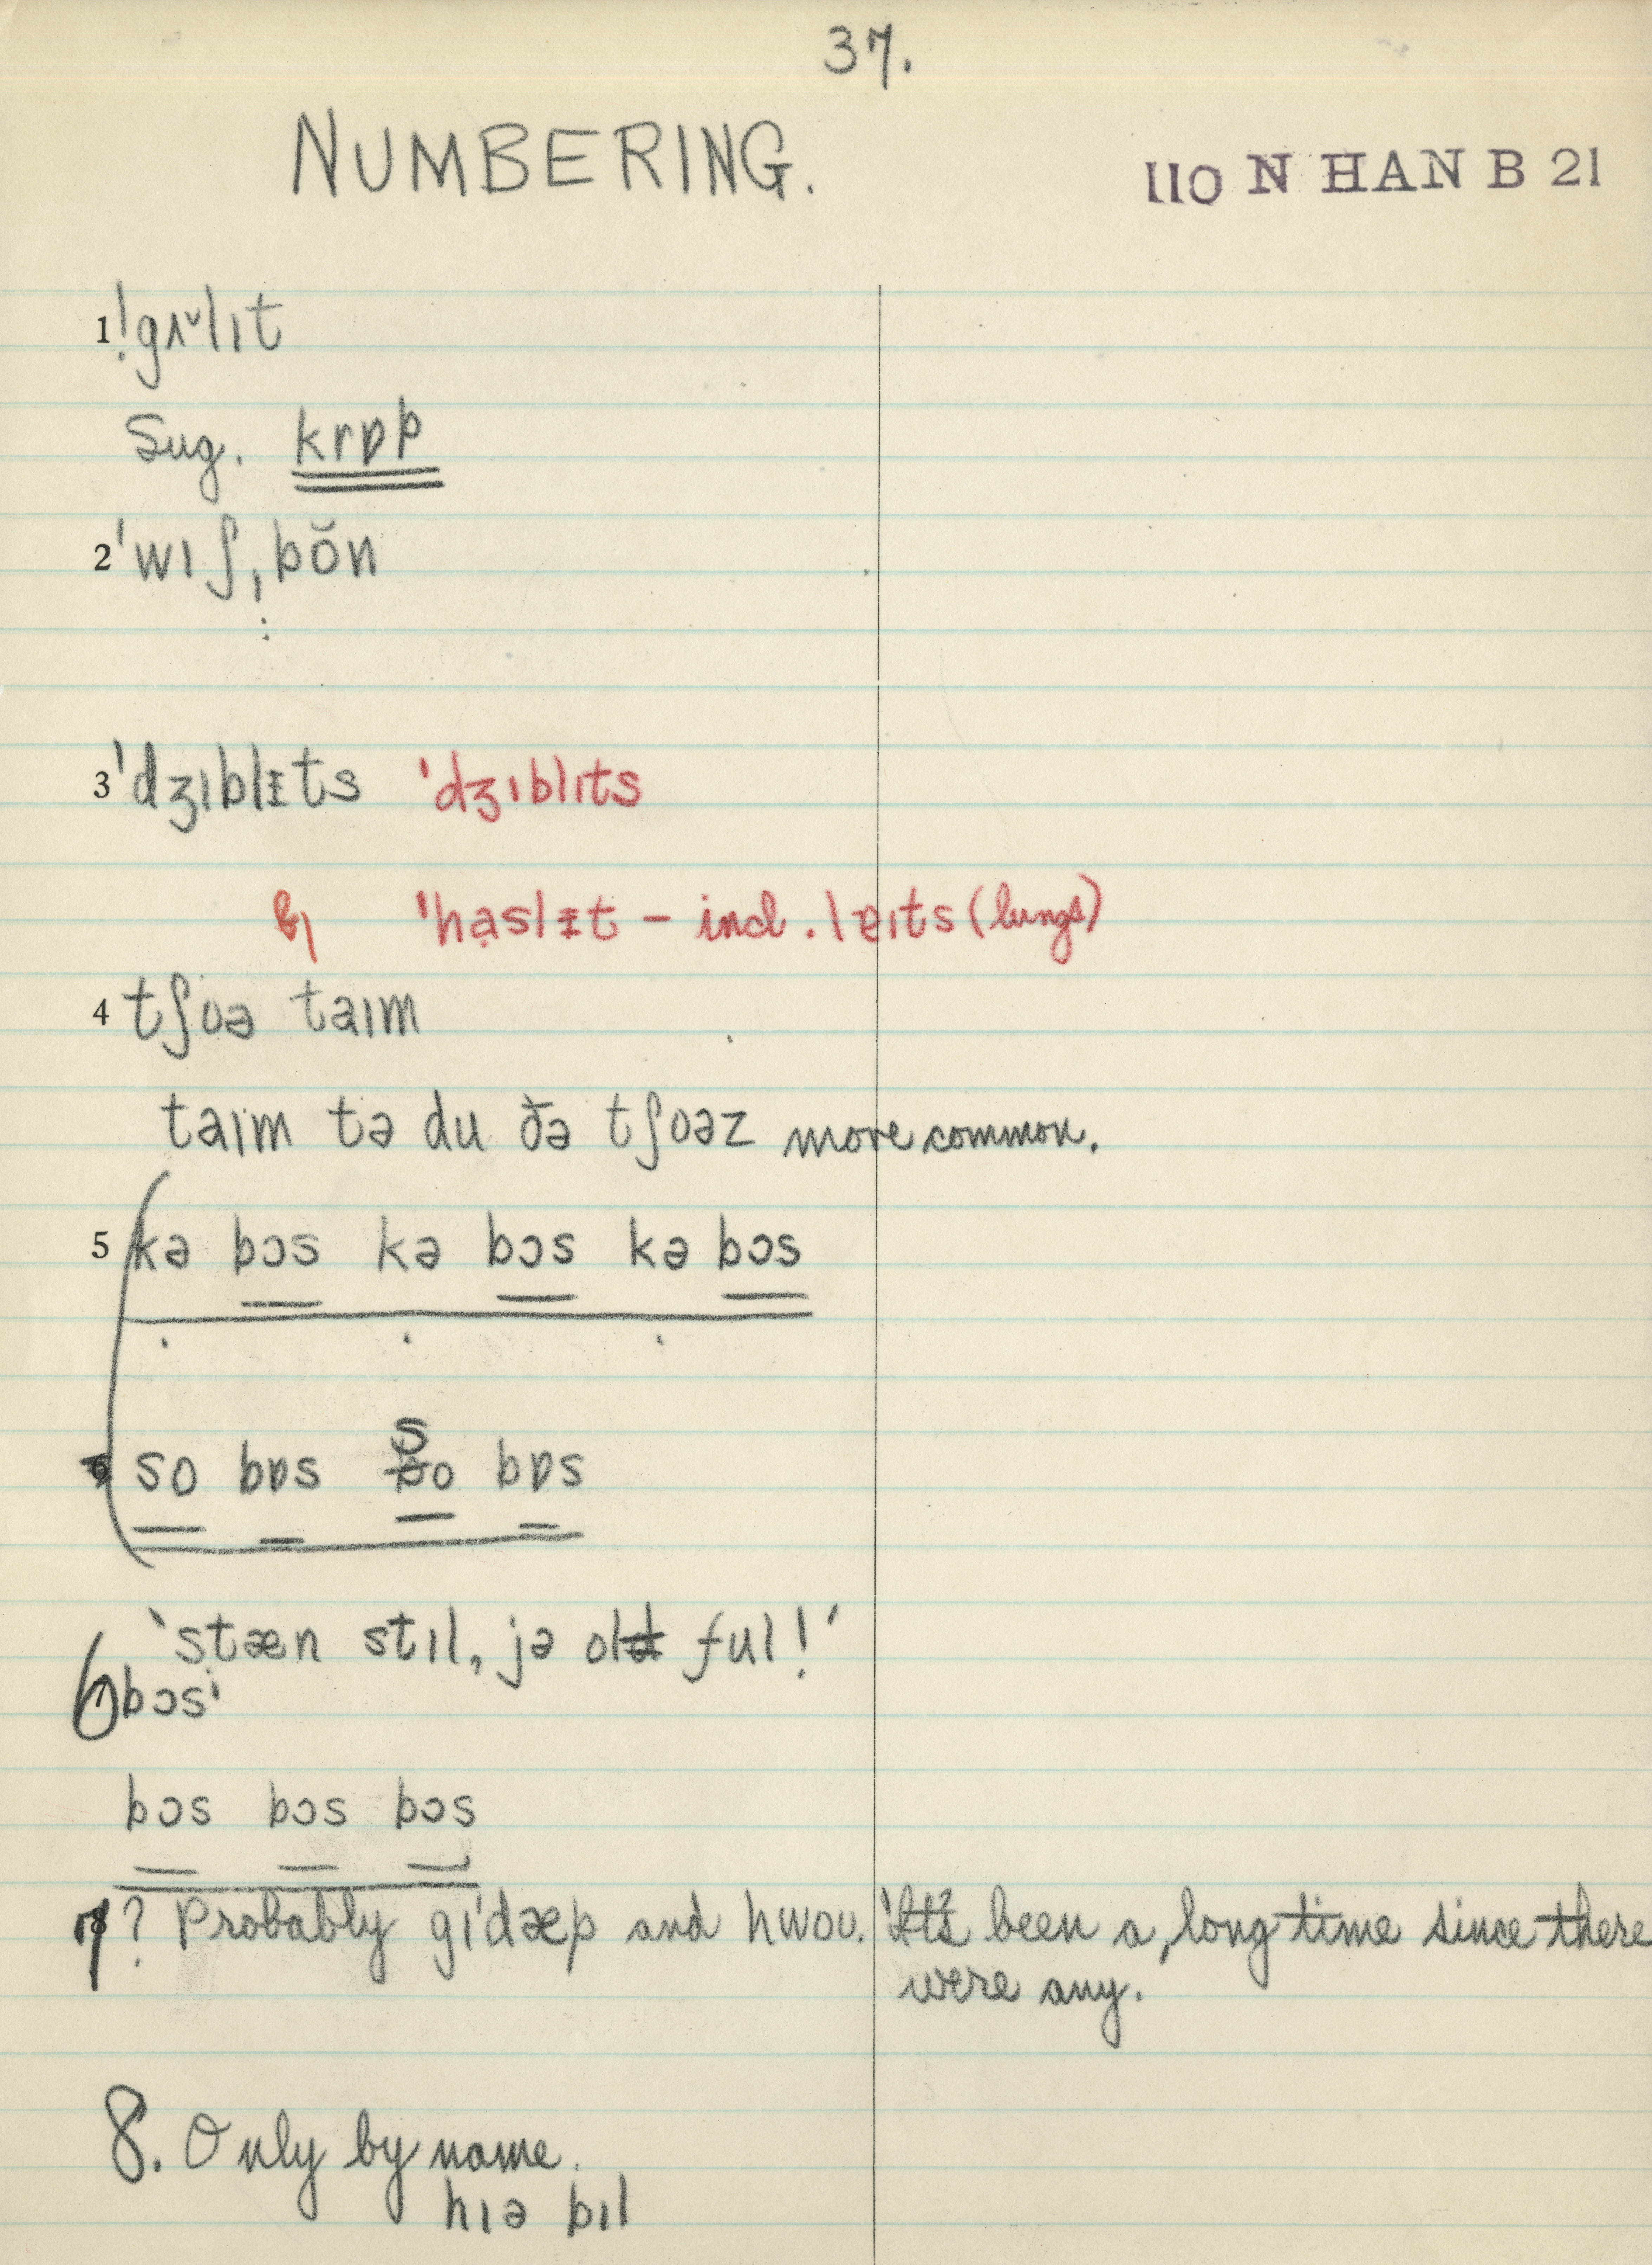 37.
NUMBERING.
110 N HAN B 21
1 ˈgʌ˅lɪt
Sug. krɒp
2 ˈwɪʃˌbŏn
3 ˈdʒɪblɪ̵ts ˈdʒɪblɪts
ˈhạslɪ̵t – incl. lɐɪts (lungs)
4 tʃoə taɪm
taɪm tə du ðə tʃoəz more common.
5 kə bɔs kə bɔs kə bɔs
so bɒs so bɒs
'stæn stɪl, jə old ful!'
6 bɔs'
bɔs bɔs bɔs
7 ? Probably gɪˈdæp and hwoʊ. 'It's been a long time since there
were any.
8. Only by name.
hɪə bɪl